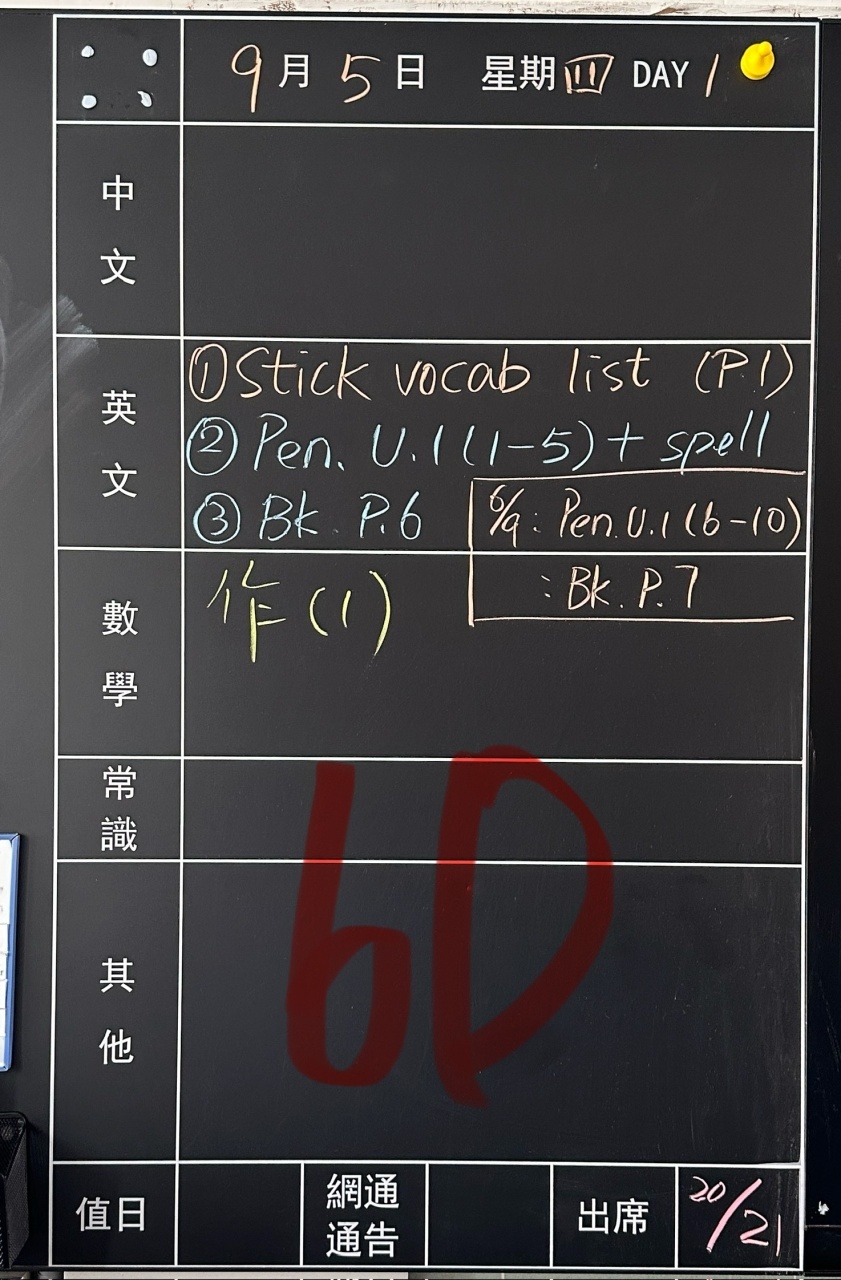 9月5日 星期四 DAY 1
中文
英文
①Stick vocab list (P.1)
②Pen. U.1 (1-5) + spell
③Bk. P.6
6/9: Pen. U.1 (6-10)
: Bk. P.7
數學
作(1)
常識
其他
6D
值日
網通
通告
出席
20/21